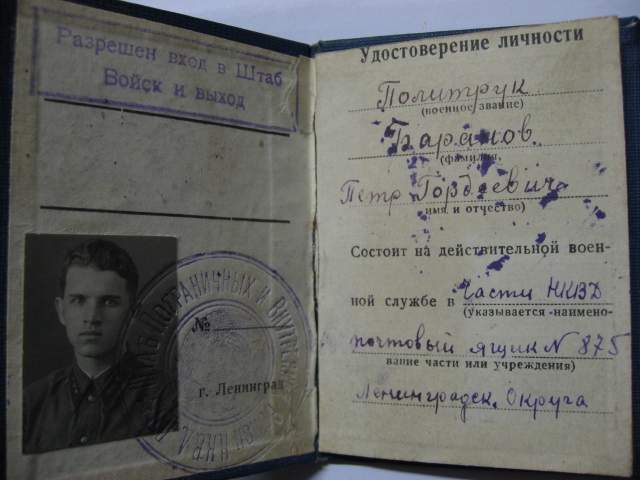 Разрешен вход в Штаб
Войск и выход
ПОГРАНИЧНЫХ И ВНУТРЕН
НКВД
№
г. Ленинград
Удостоверение личности
Политрук
(военное звание)
Баранов
(фамилия,
Петр Гордеевич
имя и отчество)
Состоит на действительной воен-
ной службе в части НКВД
(указывается наимено-
почтовый ящик № 875
вание части или учреждения)
Ленинградск. Округа